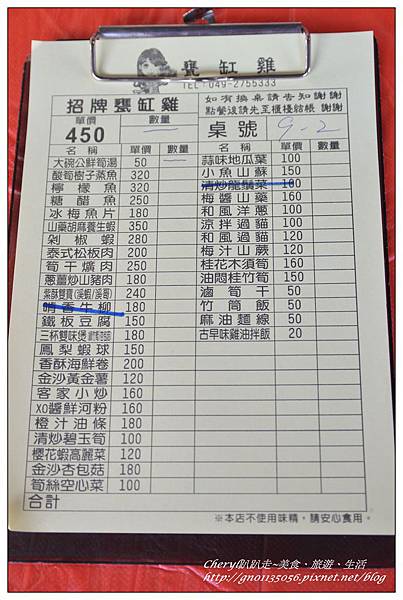 甕缸雞
TEL:049-2755333
招牌甕缸雞
單價 數量
450 一
如有換桌請告知謝謝
點餐後請先至櫃檯結帳 謝謝
桌號 9-2
名稱 單價 數量 名稱 單價 數量
大碗公鮮筍湯 50 一 蒜味地瓜葉 100
酸筍樹子蒸魚 320 小魚山蘇 150
檸檬魚 320 清炒龍鬚菜 100
糖醋魚 250 梅醬山藥 160
冰梅魚片 180 和風洋蔥 100
山藥胡麻養生蝦 350 涼拌過貓 100
剁椒蝦 280 和風過貓 120
泰式松板肉 200 梅汁山蕨 120
筍干爌肉 250 桂花木須筍 160
蔥薑炒山豬肉 180 油悶桂竹筍 150
紫酥雙寶(溪蝦/溪哥) 240 滷筍干 50
晴香牛柳 180 竹筒飯 50
鐵板豆腐 150 麻油麵線 50
三杯雙味煲 180 古早味雞油拌飯 20
鳳梨蝦球 150
香酥海鮮卷 200
金沙黃金薯 120
客家小炒 160
XO醬鮮河粉 160
橙汁油條 180
清炒碧玉筍 100
櫻花蝦高麗菜 120
金沙杏包菇 180
筍絲空心菜 100
合計
※本店不使用味精，請安心食用。
Cheryl趴趴走~美食、旅遊、生活
http://gno1135056.pixnet.net/blog